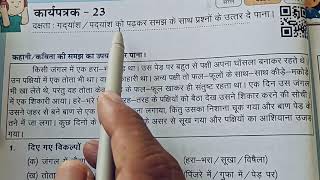 कार्यपत्रक - 23
दक्षता : गद्यांश / पद्यांश को पढ़कर समझ के साथ प्रश्नों के उत्तर दे पाना।
कहानी/कविता की समझ का उपयोग कर पाना।
किसी जंगल में एक हरा-भरा पेड़ था। उस पेड़ पर बहुत से पक्षी अपना घोंसला बनाकर रहते थे।
उन पक्षियों में एक तोता भी था। वह था। अन्य पक्षी तो फल-फूलों के साथ-साथ कीड़े-मकोड़े
भी खा लेते थे, परंतु वह तोता के फल-फूल खाकर ही संतुष्ट रहता था। एक दिन उस जंगल
में एक शिकारी आया। हरे-भरे तरह-तरह के पक्षियों को बैठा देख उसने शिकार करने की सोची
उसने जहर लगा बाण चलाया, किंतु उसका निशाना चूक गया और बाण पेड़ के
तने में जा लगा। कुछ दिनों के असर से सूख गया और पक्षियों का आशियाना उजड़
गया।
1. दिए गए विकल्पों
(क) जंगल में (हरा-भरा / सूखा / विषैला)
(ख) तोता पिंजरे में / गुफा में / पेड़ पर)